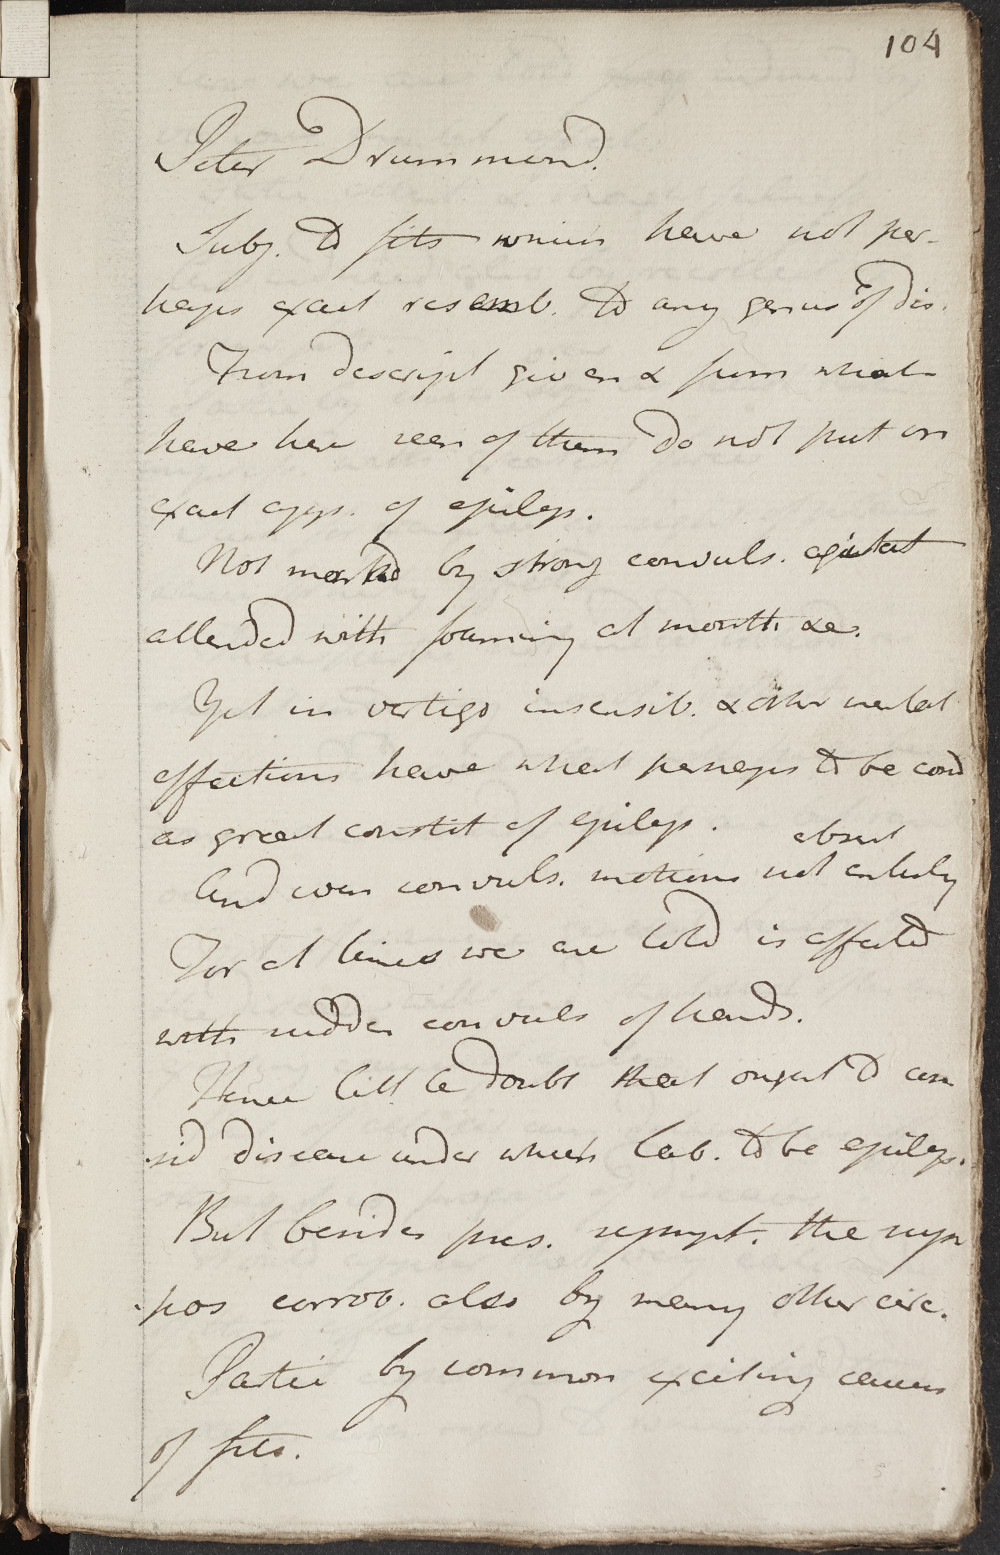 104
Peter Drummond.
Subj. to fits which have not per-
haps exact resemb. to any genus of dis.
From descript given & from what
have here seen of them do not put on
exact app. of epilep.
Not marked by strong convuls. agitat
attended with foaming at mouth &c.
Yet in vertigo insensib. & other mental
affections have what perhaps to be cond
as great constit of epilep.
absent
And even convuls. motions not entirely
For at times we are told is affected
with sudden convuls of hands.
Hence little doubt that ought to con
sid disease under which lab. to be epilep.
But besides pres. sympt. the supn
pos corrob. also by many other circ.
Partic by common exciting causes
of fits.